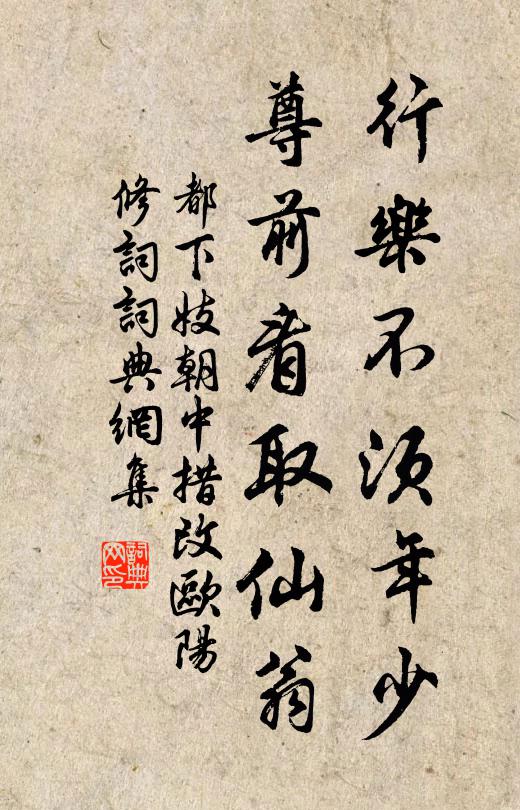 行樂不須年少
尊前看取仙翁
都下妓朝中措改歐陽
修詞詞典網集
詞典
网印